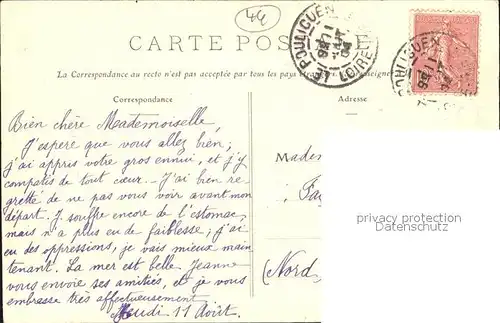 44
CARTE POS
La Correspondance au recto n'est pas acceptée par tous les pays
Renseigner
LE POULIGUEN
LOIRE
POULIGUEN
Correspondance
Adresse
Bien chère Mademoiselle,
J'espère que vous allez bien;
j'ai appris votre gros ennui, et j'y
compatis de tout cœur. - J'ai bien re-
gretté de ne pas vous voir avant mon
départ. Je souffre encore de l'estomac,
mais n'a plus eu de faiblesse; j'ai
eu des oppressions, je vais mieux main
tenant. La mer est belle Jeanne
vous envoie ses amitiés, et je vous
embrasse très affectueusement
Jeudi 11 Août.
Madem
(Nord
privacy protection
Datenschutz